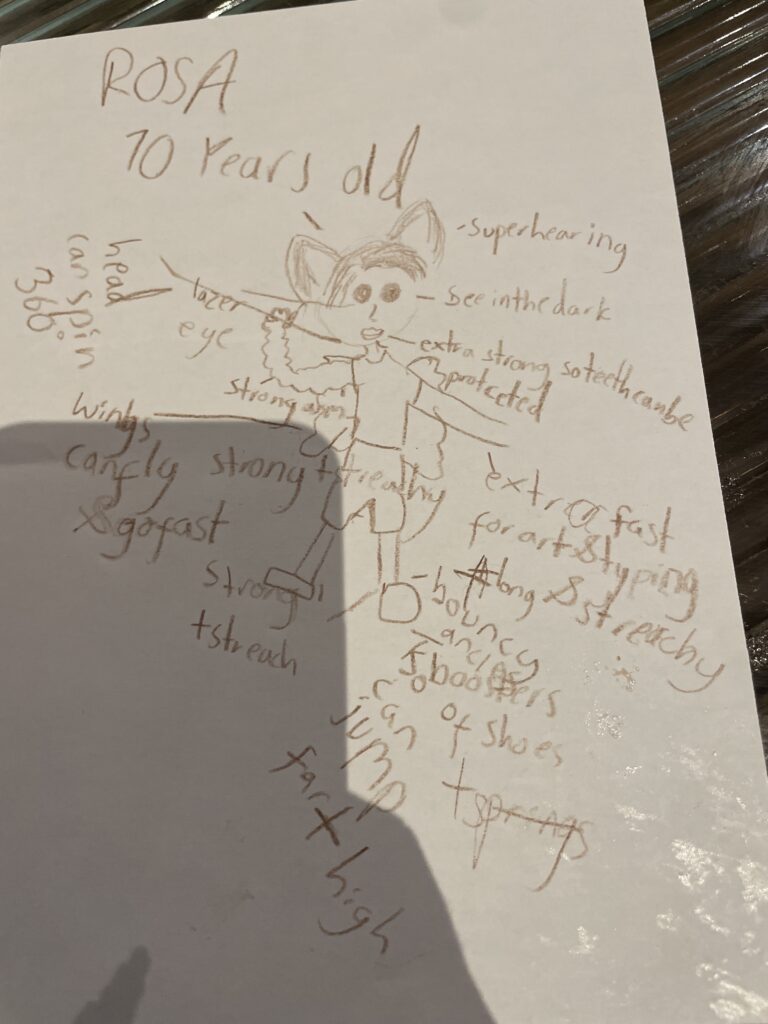 ROSA
10 Years old
superhearing
head
can spin
360°
lazer
eye
see in the dark
extra strong so teeth can be
protceted
strong arm
wings
can fly
& go fast
strong + streathy
extra fast
for art & typing
+ long & streachy
strong
+ streach
bouncy
ancles
so
can
jump
far x high
boosters
of shoes
+ springs